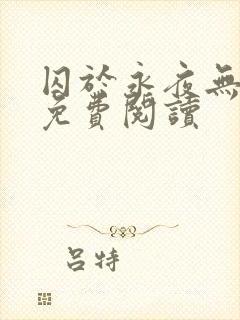 囚於永夜無
免費閱讀
呂特